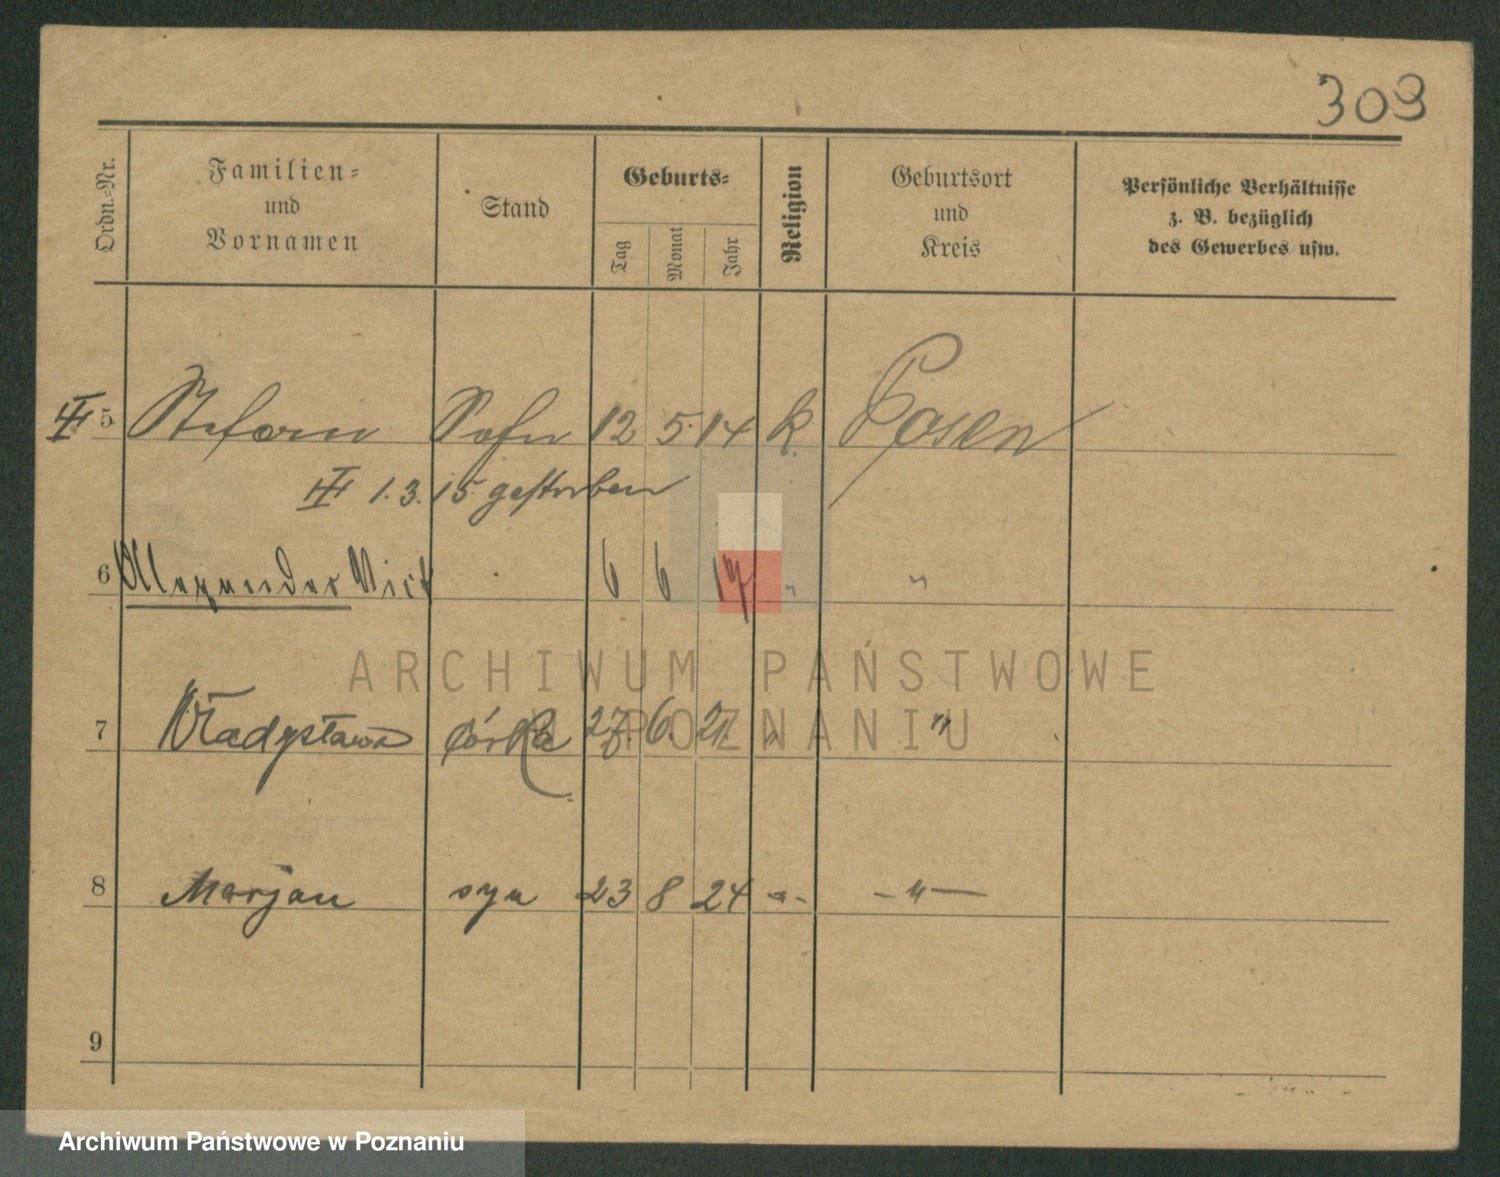 309
Ordn.-Nr.
Familien- und Vornamen
Stand
Geburts-
Tag
Monat
Jahr
Religion
Geburtsort und Kreis
Persönliche Verhältnisse z. B. bezüglich des Gewerbes usw.
5 Stefan Sohn 12 5. 14 k. Posen
1. 3. 15. gestorben
6 Alexander 6 6 17 " "
7 Władysława córka 27. 6. 21. " "
8 Marjan syn 23 8 24 -"- -"-
9
ARCHIWUM PAŃSTWOWE
W POZNANIU
Archiwum Państwowe w Poznaniu